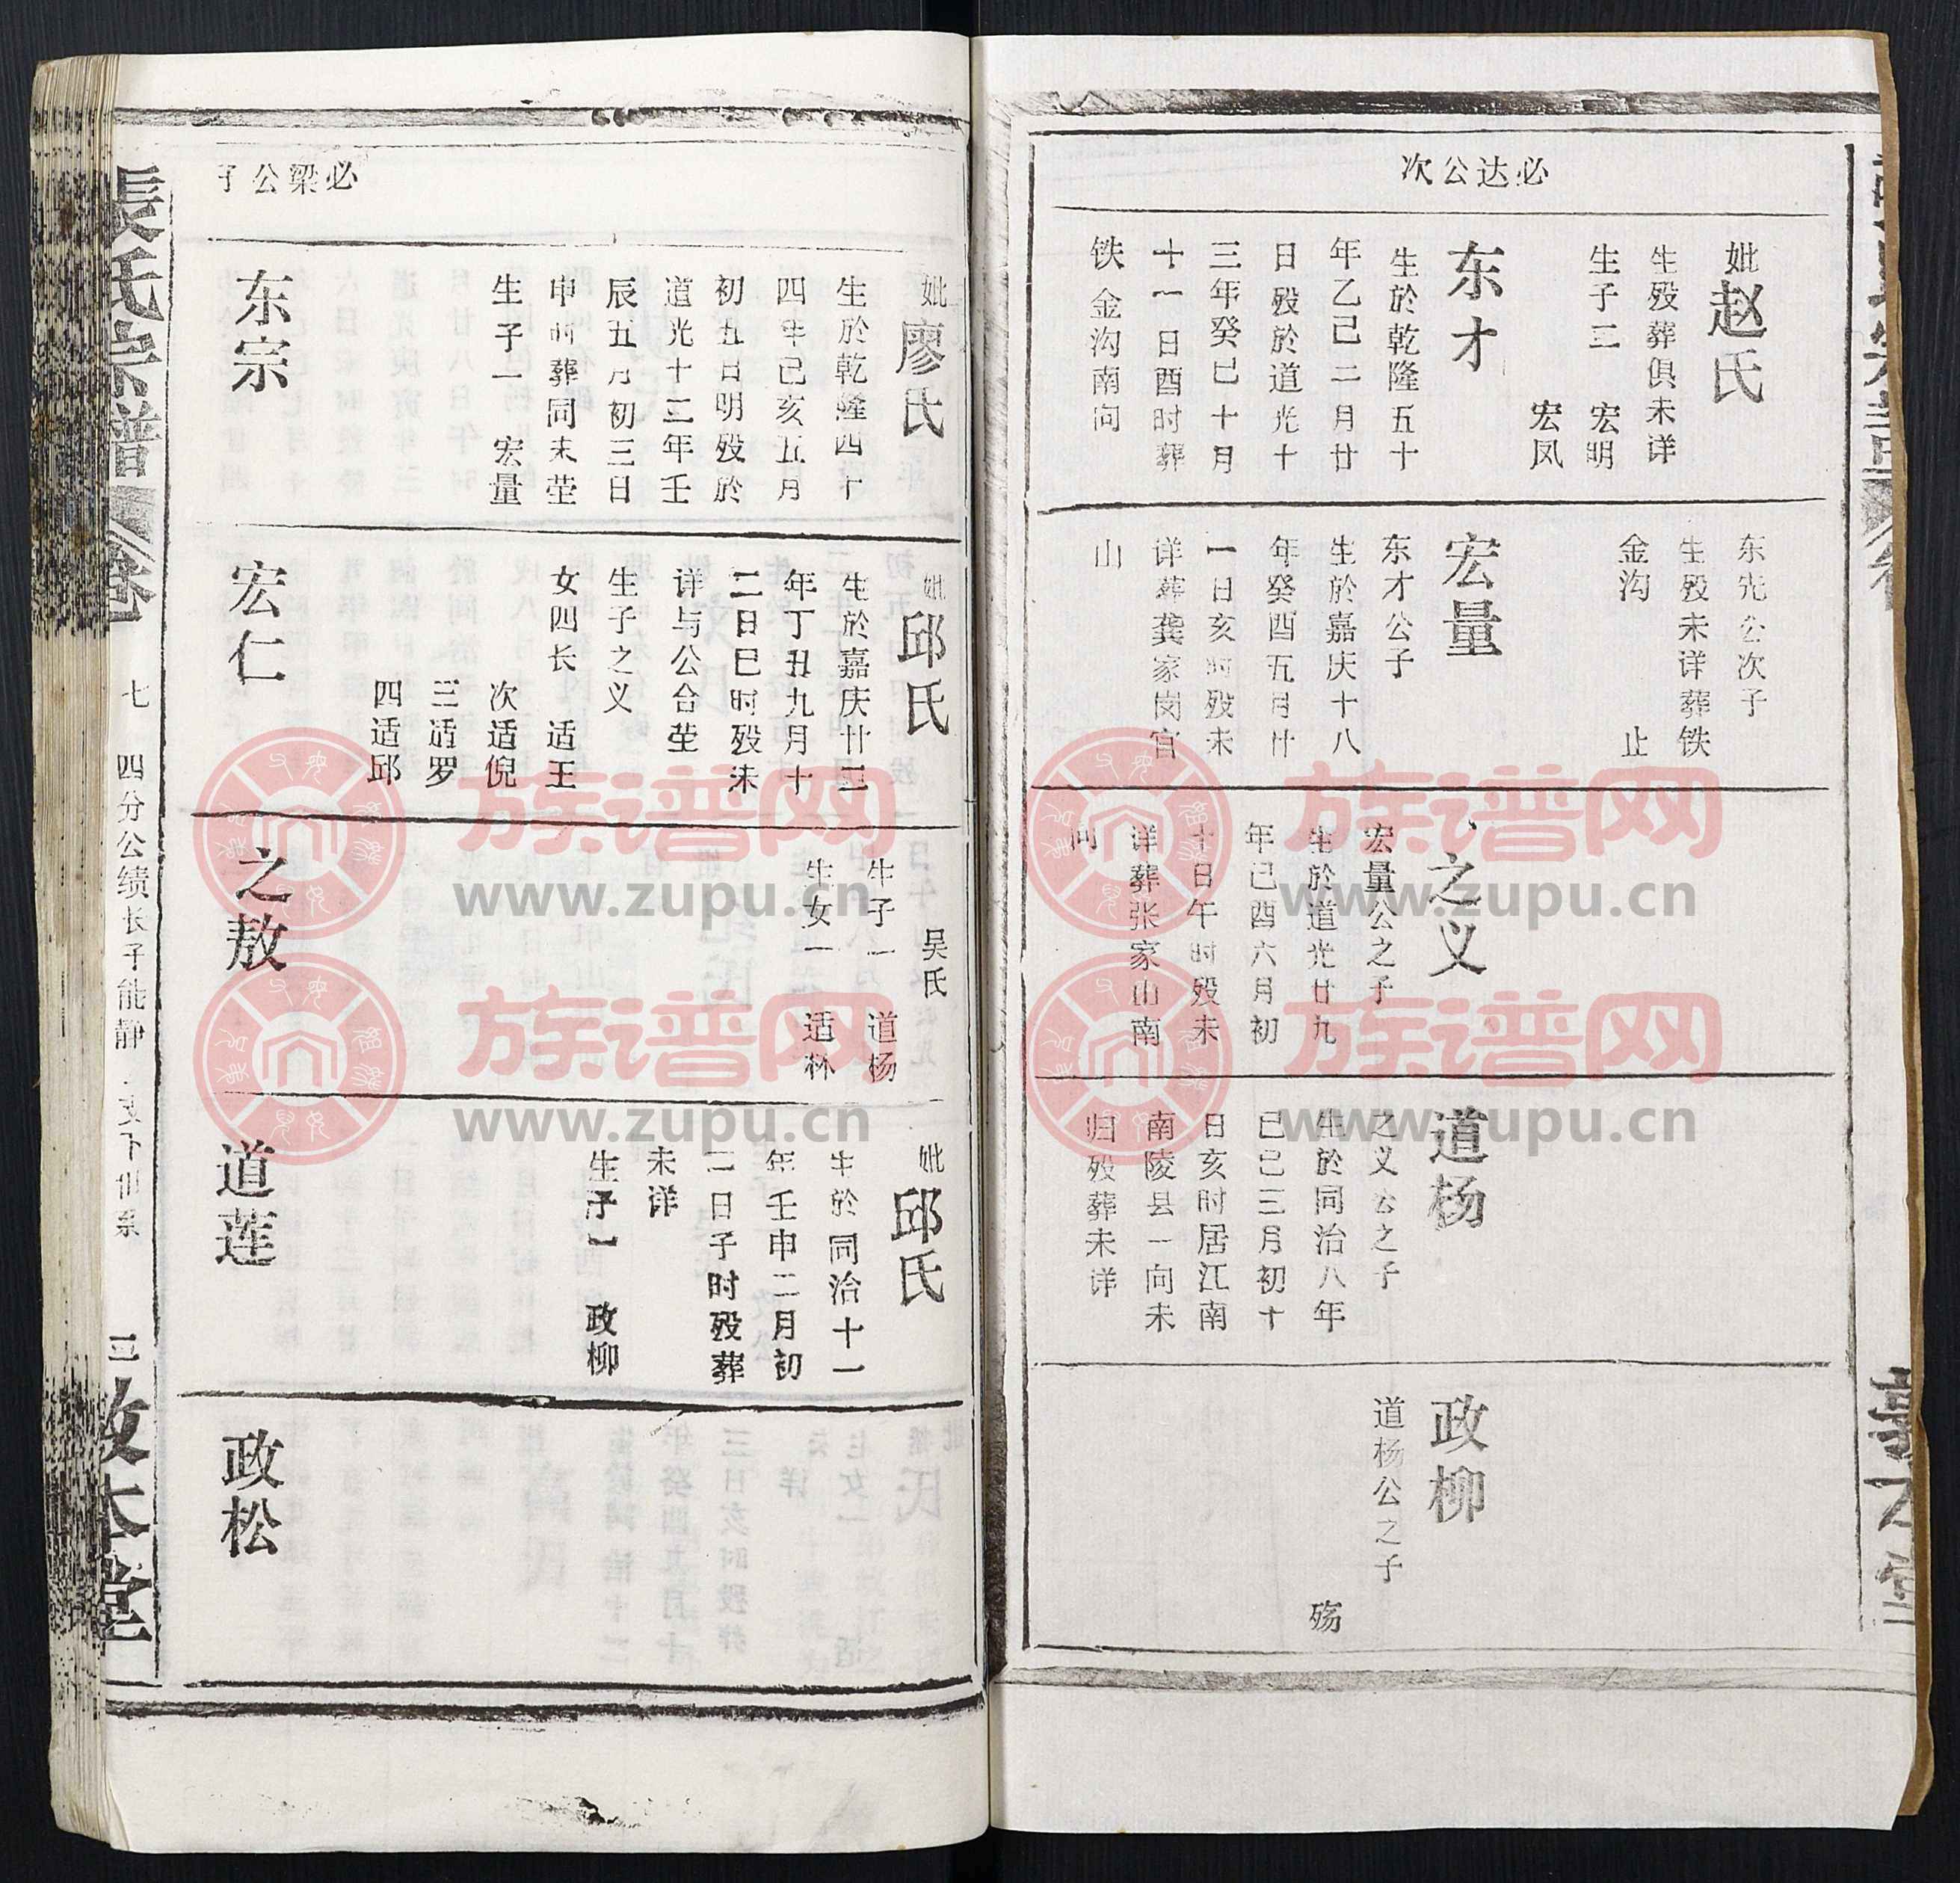 必达公次
妣赵氏
生殁葬俱未详
生子二 宏明
宏凤
东才
生於乾隆五十
年乙己二月廿
日殁於道光十
三年癸巳十月
十一日酉时葬
铁金沟南向
东先公次子
生殁未详葬铁
金沟 止
宏量
东才公子
生於嘉庆十八
年癸酉五月廿
一日亥时殁未
详葬龚家岗官
山
之义
宏量公之子
生於道光廿九
年己酉六月初
十日午时殁未
详葬张家山南
向
道杨
之义公之子
生於同治八年
已巳三月初十
日亥时居江南
南陵县一向未
归殁葬未详
政柳
道杨公之子
殇
必梁公子
妣廖氏
生於乾隆四十
四年己亥五月
初五日明殁於
道光十二年壬
辰五月初三日
申时葬同夫茔
生子一 宏量
东宗
妣邱氏
生於嘉庆廿二
年丁丑九月十
二日巳时殁未
详与公合茔
生子之义
女四长 适王
次适倪
三适罗
四适邱
宏仁
吴氏
生子一 道杨
生女一 适林
之敖
妣邱氏
生於同治十一
年壬申二月初
二日子时殁葬
未详
生子一 政柳
道莲
政松
張氏宗譜 卷
七 四分公绩长子能静
三 敦本堂
族谱网
www.zupu.cn
族谱网
www.zupu.cn
族谱网
www.zupu.cn
族谱网
www.zupu.cn